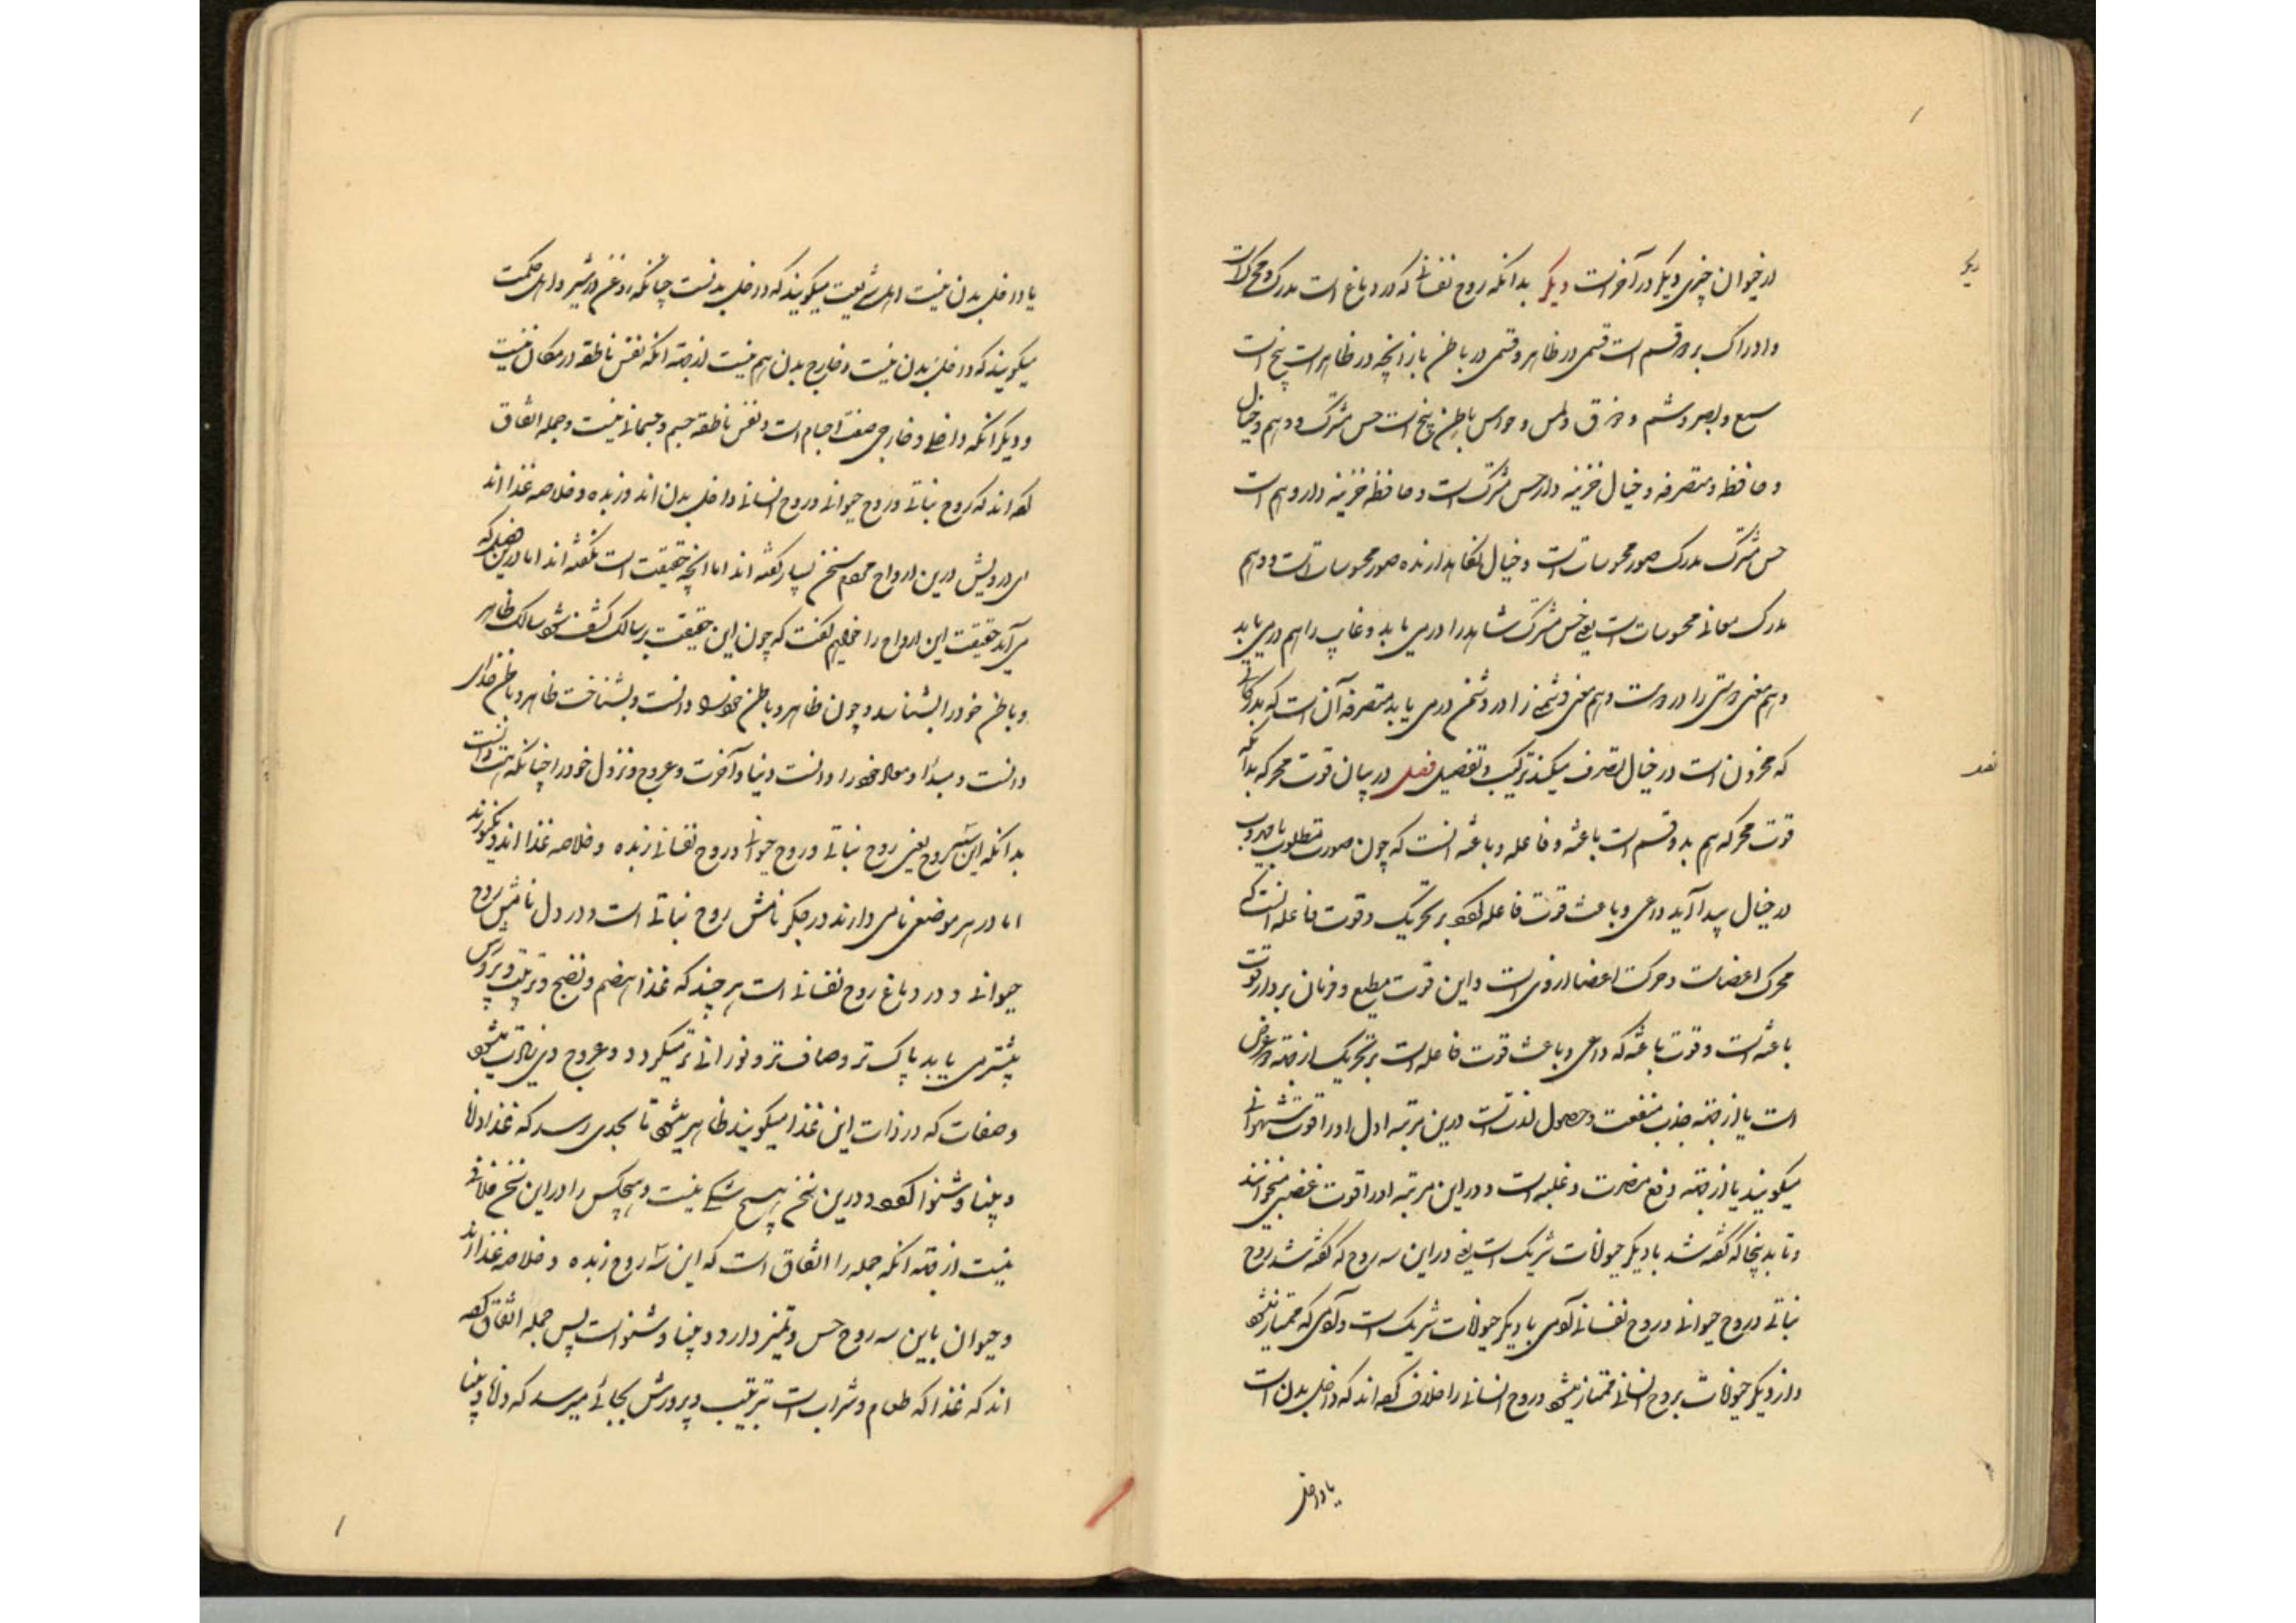 در حیوان چیزی دیگر در آخر است دیگر بدانکه روح نفسانی که در دماغ است مدرک و محرک است
دیگر
و ادراک بر دو قسم است قسمی در ظاهر و قسمی در باطن باز آنچه در ظاهر است پنج است
سمع و بصر و شم و ذوق و لمس و حواس باطن پنج است حس مشترک و وهم و خیال
و حافظه و متصرفه و خیال خزینه دار حس مشترک است و حافظه خزینه دار وهم است
حس مشترک مدرک صور محسوسات است و خیال نگاهدارنده صور محسوسات است و وهم
مدرک معانی محسوسات است یعنی حس مشترک شاهد را درمی یابد و غایب را هم درمی یابد
وهم معنی دوستی را در دوست و هم معنی دشمنی را در دشمن درمی یابد متصرفه آن است که مدرکاتی
که مخزون است در خیال تصرف میکند بترکیب و تفصیل فصل در بیان قوت محرکه بدانکه
قوت محرکه هم بدو قسم است باعثه و فاعله و باعثه انست که چون صورت مطلوب یا مهروب
در خیال پیدا آید داعی و باعث قوت فاعله گردد بر تحریک و قوت فاعله انست که
محرک اعضاست و حرکت اعضا از وی است و این قوت مطیع و فرمان بردار قوت
باعثه است و قوت باعثه که داعی و باعث قوت فاعله است بر تحریک از جهة دو غرض
است یا از جهة جذب منفعت و حصول لذت است درین مرتبه اول او را قوت شهوانی
میگویند یا از جهة دفع مضرت و غلبه است و در این مرتبه او را قوت غضبی میخوانند
و تا بدینجا که گفته شد با دیگر حیوانات شریک است یعنی در این سه روح که گفته شد روح
نباتی و روح حیوانی و روح نفسانی آدمی با دیگر حیوانات شریک است و آدمی که ممتاز میشود
و از دیگر حیوانات بروح انسانی ممتاز میشود و روح انسانی را خلاف کرده اند که داخل بدن است
یا داخل
یا داخل بدن نیست اهل شریعت میگویند که در داخل بدنست چنانکه روغن در شیر و اهل حکمت
میگویند که در داخل بدن نیست و خارج بدن هم نیست از جهة انکه نفس ناطقه در مکان نیست
و دیگر انکه داخلی و خارجی صفت اجسام است و نفس ناطقه جسم و جسمانی نیست و جمله اتفاق
کرده اند که روح نباتی و روح حیوانی و روح انسانی داخل بدن اند و زبده و خلاصه غذا اند
ای درویش درین ارواح مردم سخن بسیار گفته اند اما انچه حقیقت است نگفته اند اما درین فصل که
می آید حقیقت این ارواح را خواهیم گفت که چون این حقیقت بر سالک کشف شود سالک ظاهر
و باطن خود را بشناسد و چون ظاهر و باطن خود را دانست و بشناخت ظاهر و باطن خدای
دانست و مبدأ و معاد خود را دانست دنیا و آخرت و عروج و نزول خود را چنانکه هست دانست
بدانکه این سه روح یعنی روح نباتی و روح حیوانی و روح نفسانی زبده و خلاصه غذا اند
اما در هر موضعی نامی دارند در جگر نامش روح نباتی است و در دل نامش روح
حیوانی و در دماغ روح نفسانی است هر چند که غذا هضم و نضج و تربیت و پرورش
بیشتر می یابد پاک تر و صاف تر و نورانی تر میگردد و عروج وی زیادت میشود
و صفات که در ذات این غذا میگویند ظاهر میشود تا بحدی رسد که غذا دانا
و بینا و شنوا گردد و درین سخن هیچ شکی نیست و هیچکس را در این سخن خلافی
نیست از جهة انکه جمله را اتفاق است که این سه روح زبده و خلاصه غذا اند
و حیوان باین سه روح حس و تمیز دارد و بینا و شنواست پس جمله اتفاق کرده
اند که غذا که طعام و شراب است بتربیت و پرورش بجائی میرسد که دانا و بینا